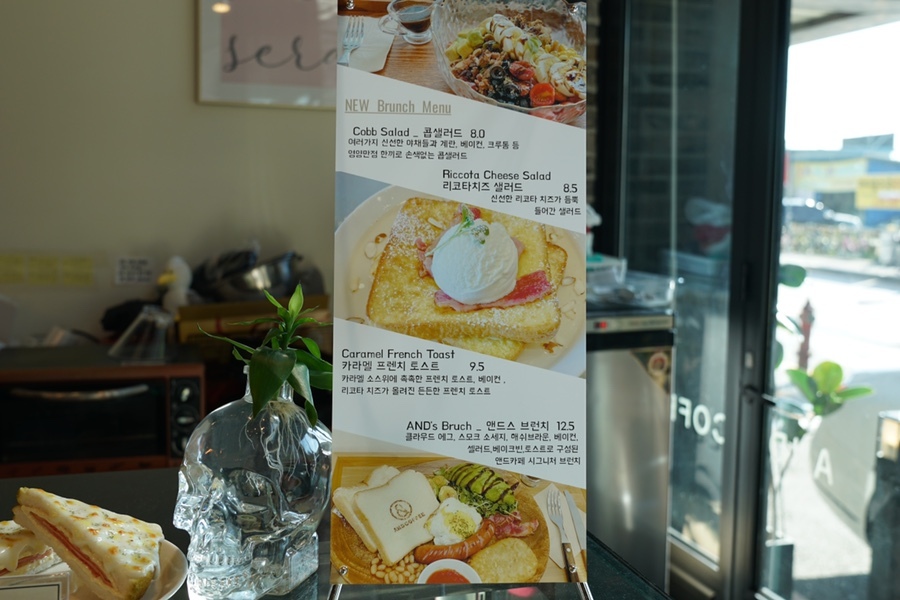 sera
NEW Brunch Menu
Cobb Salad _ 콥샐러드 8.0
여러가지 신선한 야채들과 계란, 베이컨, 크루통 등
영양만점 한끼로 손색없는 콥샐러드
Riccota Cheese Salad
리코타치즈 샐러드 8.5
신선한 리코타 치즈가 듬뿍
들어간 샐러드
Caramel French Toast
카라멜 프렌치 토스트 9.5
카라멜 소스위에 촉촉한 프렌치 토스트, 베이컨,
리코타 치즈가 올려진 든든한 프렌치 토스트
AND's Bruch _ 앤드스 브런치 12.5
클라우드 에그, 스모크 소세지, 해쉬브라운, 베이컨,
샐러드,베이크빈,토스트로 구성된
앤드카페 시그니처 브런치
AND COFFEE
COF
A